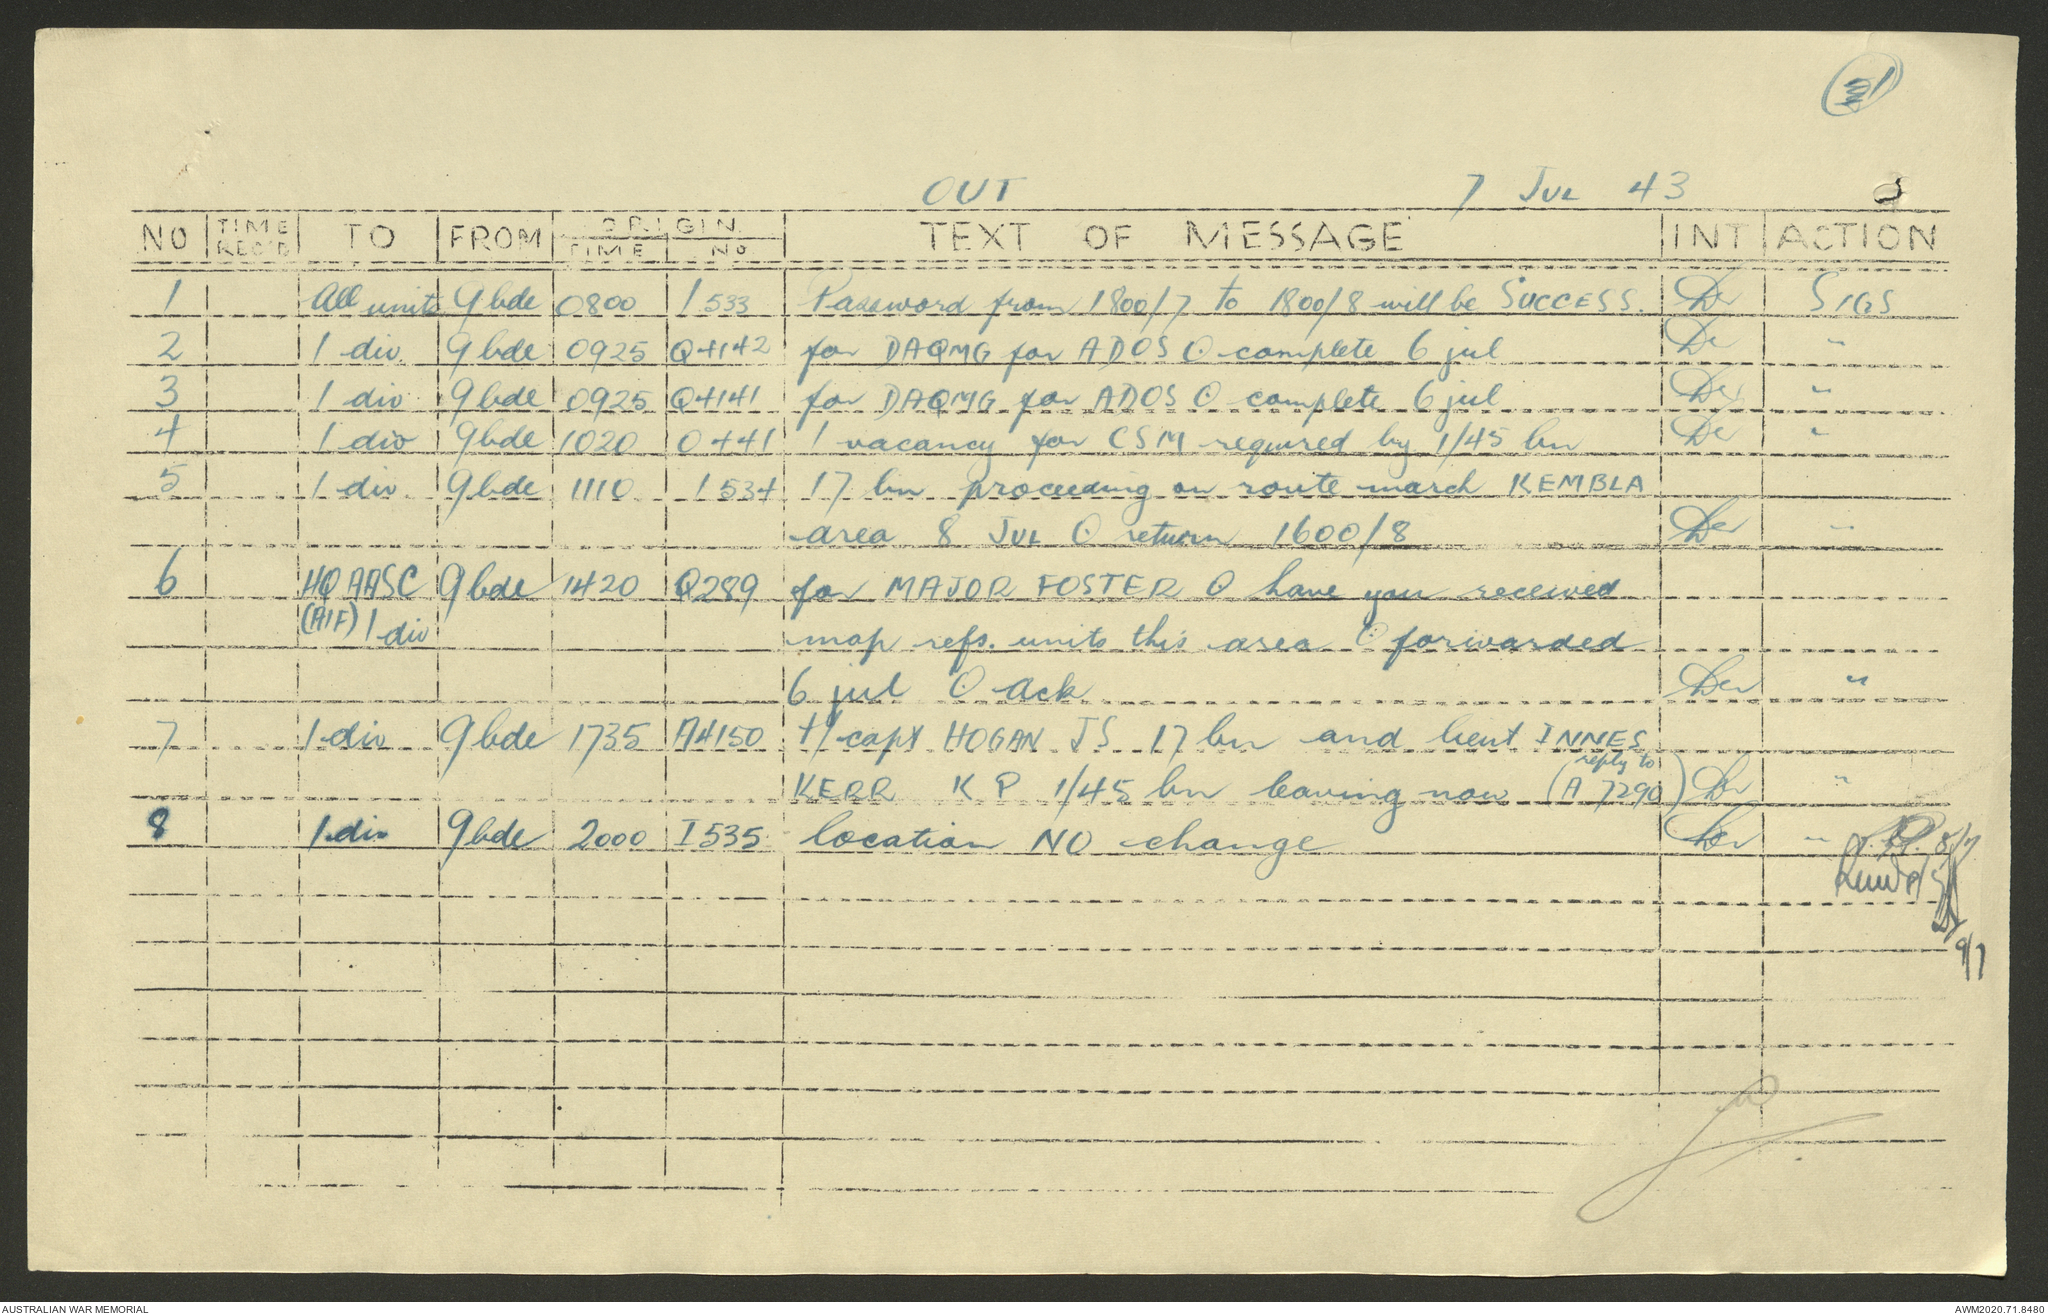 OUT 7 JUL 43
NO TIME REC'D TO FROM ORIGIN TIME No TEXT OF MESSAGE INT ACTION
1 All units 9 bde 0800 I 533 Password from 1800/7 to 1800/8 will be SUCCESS. SIGS
2 1 div 9 bde 0925 Q4142 for DAQMG for ADOS ⊙ complete 6 jul "
3 1 div 9 bde 0925 Q4141 for DAQMG for ADOS ⊙ complete 6 jul "
4 1 div 9 bde 1020 O441 1 vacancy for CSM required by 1/45 bn "
5 1 div 9 bde 1110 I 534 17 bn proceeding on route march KEMBLA
area 8 JUL ⊙ return 1600/8 "
6 HQ AASC 9 bde 1420 Q289 for MAJOR FOSTER ⊙ have you received
(AIF) 1 div map refs. units this area ⊙ forwarded
6 jul ⊙ ack "
7 1 div 9 bde 1735 A4150 t/capt HOGAN JS 17 bn and lieut INNES
KERR K P 1/45 bn leaving now (reply to A 7290) "
8 1 div 9 bde 2000 I535 location NO change "
8/7
9/7
AUSTRALIAN WAR MEMORIAL AWM2020.71.8480